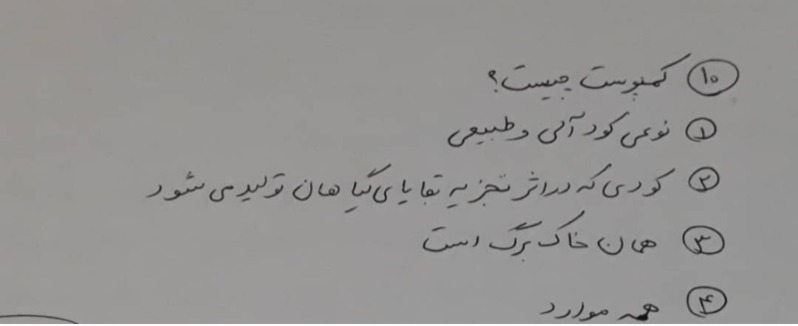 ۱۰ کمپوست چیست؟
۱ نوعی کود آلی و طبیعی
۲ کودی که در اثر تجزیه بقایای گیاهان تولید می شود
۳ همان خاک برگ است
۴ همه موارد